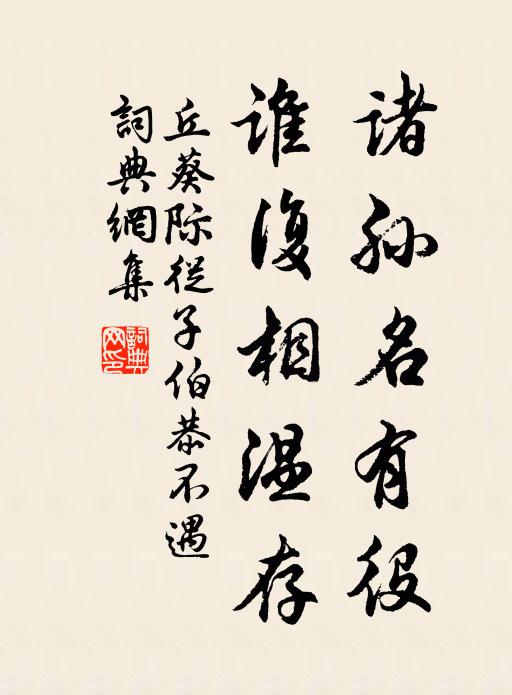 诸孙名有役
谁復相温存
丘葵际從子伯恭不遇
詞典網集
詞典网印